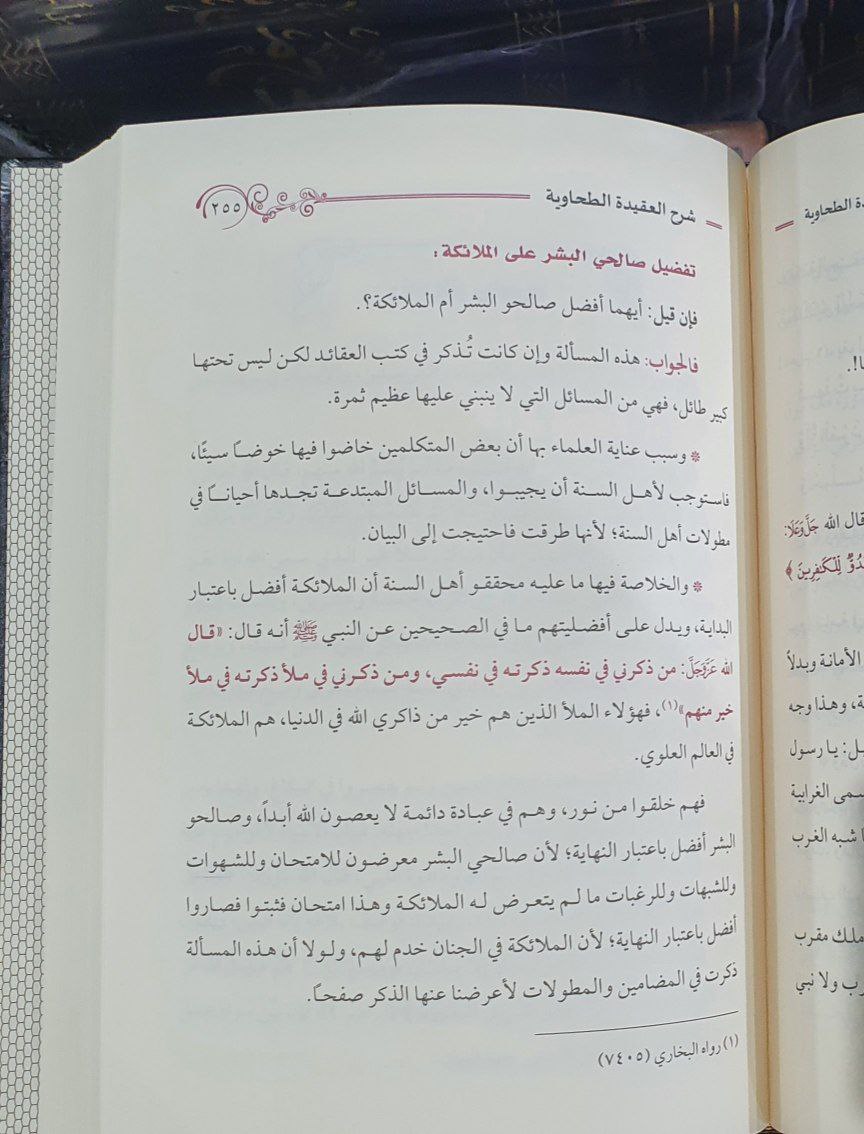 شرح العقيدة الطحاوية
٢٥٥
تفضيل صالحي البشر على الملائكة:
فإن قيل: أيهما أفضل صالحو البشر أم الملائكة؟.
فالجواب: هذه المسألة وإن كانت تُذكر في كتب العقائد لكن ليس تحتها
كبير طائل، فهي من المسائل التي لا ينبني عليها عظيم ثمرة.
* وسبب عناية العلماء بها أن بعض المتكلمين خاضوا فيها خوضاً سيئًا،
فاستوجب لأهل السنة أن يجيبوا، والمسائل المبتدعة تجدها أحياناً في
مطولات أهل السنة؛ لأنها طرقت فاحتيجت إلى البيان.
* والخلاصة فيها ما عليه محققو أهل السنة أن الملائكة أفضل باعتبار
البداية، ويدل على أفضليتهم ما في الصحيحين عن النبي ﷺ أنه قال: «قال
الله عَزَّوَجَلَّ: من ذكرني في نفسه ذكرته في نفسي، ومن ذكرني في ملأ ذكرته في ملأ
خير منهم»(١)، فهؤلاء الملأ الذين هم خير من ذاكري الله في الدنيا، هم الملائكة
في العالم العلوي.
فهم خلقوا من نور، وهم في عبادة دائمة لا يعصون الله أبداً، وصالحو
البشر أفضل باعتبار النهاية؛ لأن صالحي البشر معرضون للامتحان وللشهوات
وللشبهات وللرغبات ما لم يتعرض له الملائكة وهذا امتحان فثبتوا فصاروا
أفضل باعتبار النهاية؛ لأن الملائكة في الجنان خدم لهم، ولولا أن هذه المسألة
ذكرت في المضامين والمطولات لأعرضنا عنها الذكر صفحاً.
(١) رواه البخاري (٧٤٠٥)
الطحاوية
قال الله جَلَّوَعَلَا:
لِّلْكَٰفِرِينَ ﴾
الأمانة وبدلاً
وهذا وجه
يا رسول
الغرابية
شبه الغرب
ملك مقرب
ولا نبي